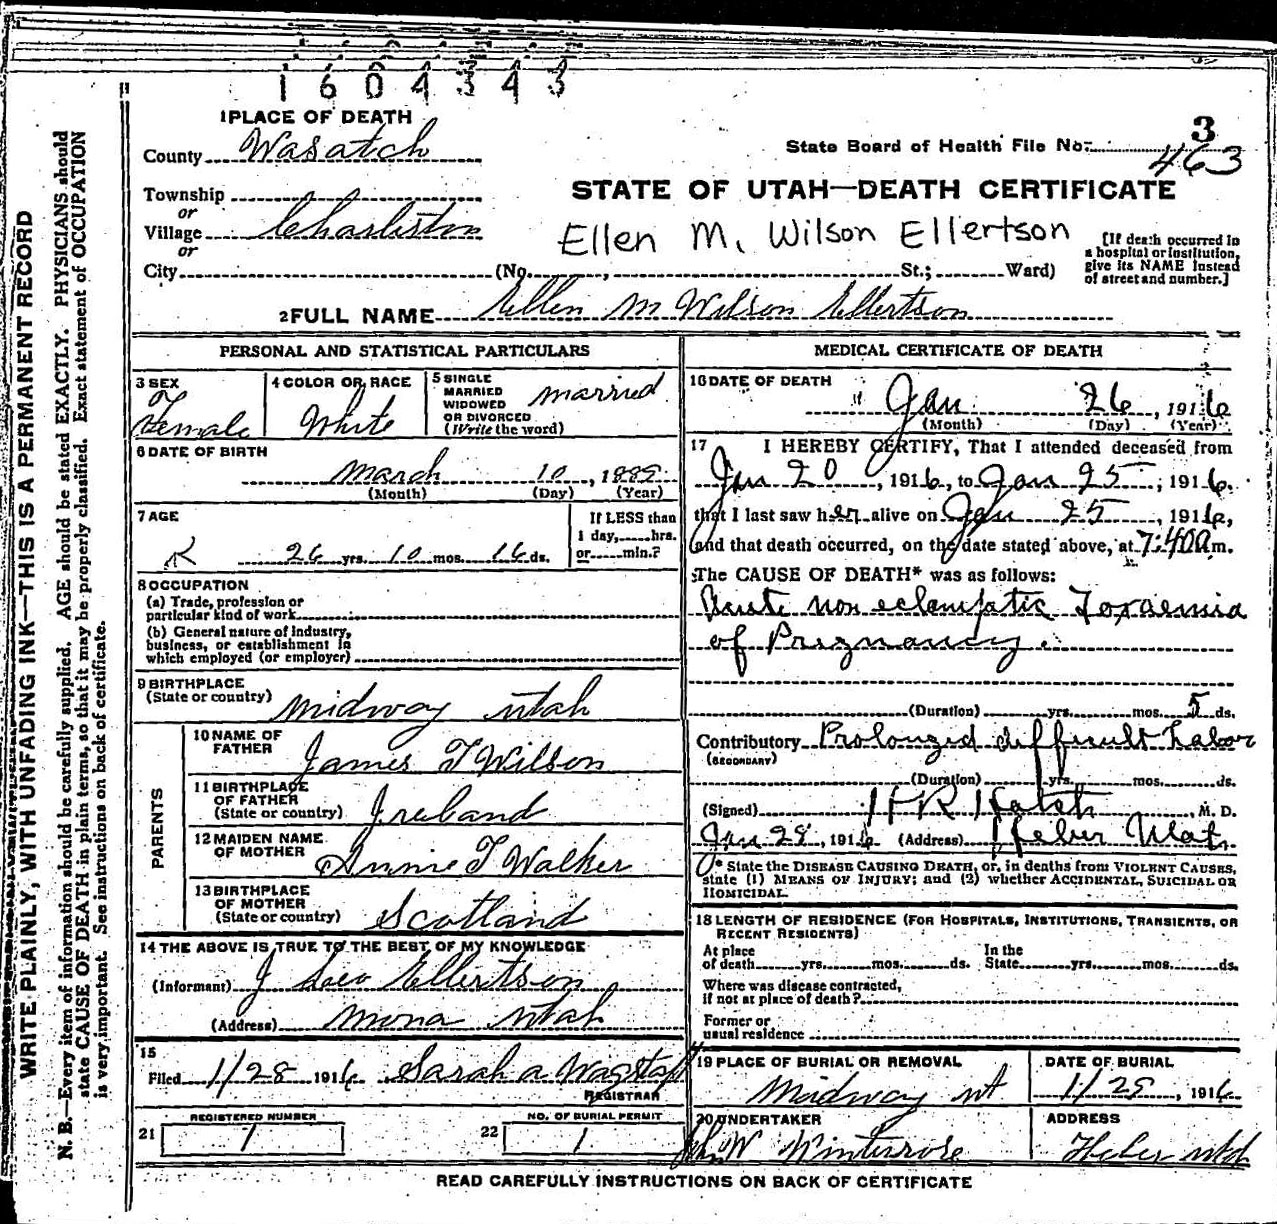 1604343
1 PLACE OF DEATH
County Wasatch
Township
or
Village Charleston
or
City (No. , St.; Ward)
3
State Board of Health File No. 463
STATE OF UTAH—DEATH CERTIFICATE
Ellen M. Wilson Ellertson
[If death occurred in
a hospital or institution,
give its NAME instead
of street and number.]
2 FULL NAME Ellen M Wilson Ellertson
PERSONAL AND STATISTICAL PARTICULARS
3 SEX
Female
4 COLOR OR RACE
White
5 SINGLE
MARRIED
WIDOWED
OR DIVORCED
(Write the word)
married
6 DATE OF BIRTH
March 10, 1889
(Month) (Day) (Year)
7 AGE
26 yrs. 10 mos. 16 ds.
If LESS than
1 day, hrs.
or min.?
8 OCCUPATION
(a) Trade, profession or
particular kind of work
(b) General nature of industry,
business, or establishment in
which employed (or employer)
9 BIRTHPLACE
(State or country) Midway Utah
PARENTS
10 NAME OF
FATHER James T Wilson
11 BIRTHPLACE
OF FATHER
(State or country) Ireland
12 MAIDEN NAME
OF MOTHER Annie T Walker
13 BIRTHPLACE
OF MOTHER
(State or country) Scotland
14 THE ABOVE IS TRUE TO THE BEST OF MY KNOWLEDGE
(Informant) J Leo Ellertson
(Address) Mona Utah
15
Filed 1/28 1916 Sarah A Wagstaff
REGISTRAR
REGISTERED NUMBER
21 1
NO. OF BURIAL PERMIT
22 1
MEDICAL CERTIFICATE OF DEATH
16 DATE OF DEATH
Jan 26, 1916
(Month) (Day) (Year)
17 I HEREBY CERTIFY, That I attended deceased from
Jan 20, 1916, to Jan 25, 1916,
that I last saw her alive on Jan 25, 1916,
and that death occurred, on the date stated above, at 7:40 a m.
The CAUSE OF DEATH* was as follows:
Acute non eclamptic Toxaemia
of Pregnancy.
(Duration) yrs. mos. 5 ds.
Contributory Prolonged difficult Labor
(SECONDARY)
(Duration) yrs. mos. ds.
(Signed) H R Hatch, M. D.
Jan 28, 1916 (Address) Heber Utah.
* State the DISEASE CAUSING DEATH, or, in deaths from VIOLENT CAUSES,
state (1) MEANS OF INJURY; and (2) whether ACCIDENTAL, SUICIDAL OR
HOMICIDAL.
18 LENGTH OF RESIDENCE (FOR HOSPITALS, INSTITUTIONS, TRANSIENTS, OR
RECENT RESIDENTS)
At place
of death yrs. mos. ds.
In the
State yrs. mos. ds.
Where was disease contracted,
if not at place of death?
Former or
usual residence
19 PLACE OF BURIAL OR REMOVAL
Midway Ut
DATE OF BURIAL
1/28, 1916
20 UNDERTAKER
John W Winterrose
ADDRESS
Heber Utah
READ CAREFULLY INSTRUCTIONS ON BACK OF CERTIFICATE
WRITE PLAINLY, WITH UNFADING INK—THIS IS A PERMANENT RECORD
N. B.—Every item of information should be carefully supplied. AGE should be stated EXACTLY. PHYSICIANS should
state CAUSE OF DEATH in plain terms, so that it may be properly classified. Exact statement of OCCUPATION
is very important. See instructions on back of certificate.